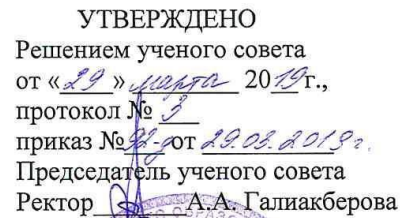 УТВЕРЖДЕНО
Решением ученого совета
от «29» марта 2019г.,
протокол № 3
приказ №92-д от 29.03.2019г.
Председатель ученого совета
Ректор А.А. Галиакберова